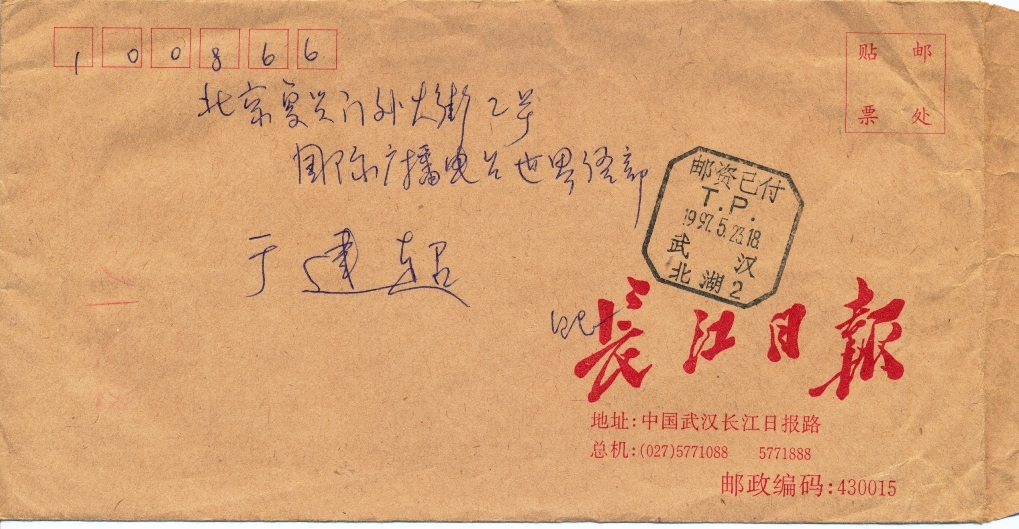 100866
贴 邮
票 处
北京复兴门外大街2号
国际广播电台世界经部
于建超
邮资已付
T.P.
1997.5.23.18
武汉
北湖2
長江日報
地址:中国武汉长江日报路
总机:(027)5771088 5771888
邮政编码:430015